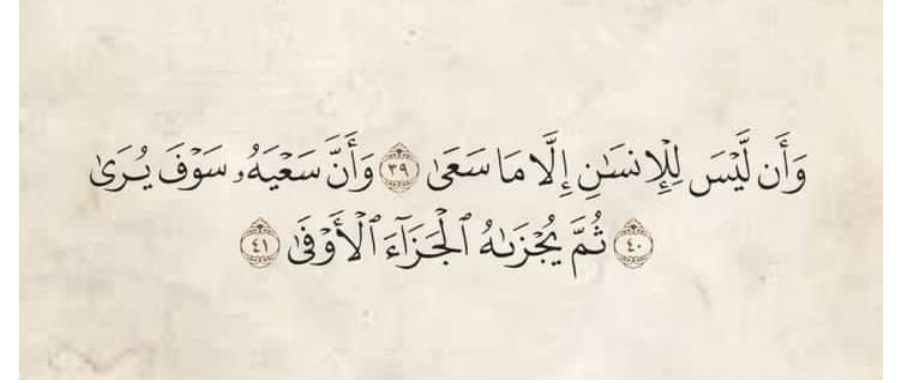 وَأَن لَّيْسَ لِلْإِنسَٰنِ إِلَّا مَا سَعَىٰ ٣٩ وَأَنَّ سَعْيَهُۥ سَوْفَ يُرَىٰ
٤٠ ثُمَّ يُجْزَىٰهُ ٱلْجَزَآءَ ٱلْأَوْفَىٰ ٤١